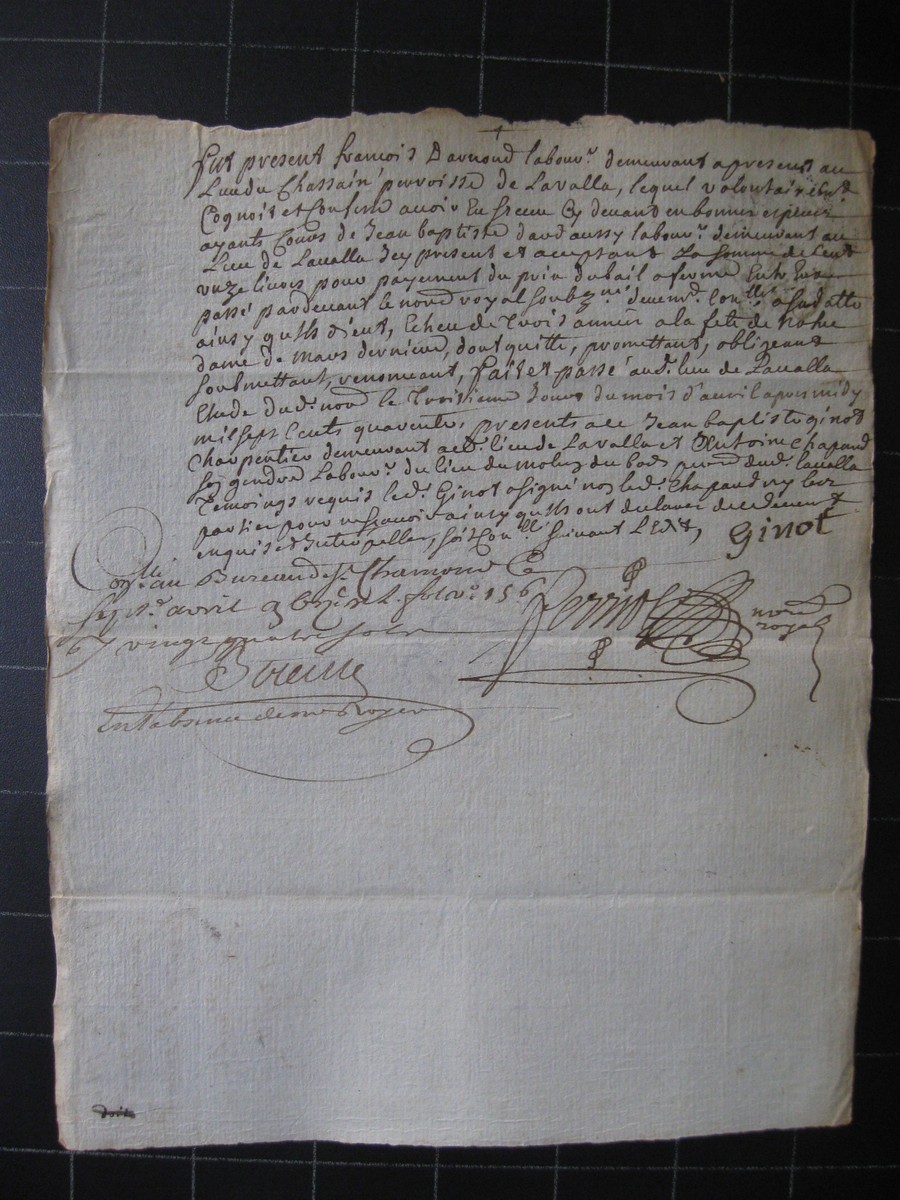 fut present francois Darnoud labour.r demeurant apresent au
Lieu du Chassain perroisse de Lavalla, lequel volontairem.t
Cognoit et Confesse auoir En Receu Cy deuant en bonnes especes
ayants Cours de Jean baptiste dard aussy labour.r demeurant au
Lieu de Laualla Jcy present et acceptant La somme de Cent
vnze liures pour payement du prix du bail a ferme Entr Eux
passé pardeuant le no.re royal soub.né deuem.t Con.llé a sa datte
ainsy quils dient, Echeu de Trois années a la fete de notre
dame de mars derniere, dont quitte, promettant, obligeant
soubmettant, renonceant, fait et passé aud. lieu de Laualla
Etude dud. no.re le Troisieme Jour du mois d'auril apres midy
mil sept Cents quarente, presents a Ce Jean baptiste ginot
Charpentier demeurant aud. lieu de Lavalla et Antoine Chapard
son gendre Labour.r du lieu du du perr.sse dud. laualla
Temoings requis led. Ginot a signé non led. Chapard ny les
parties pour ne scauoir ainsy quils ont declaré de ce deuem.t
enquis et Jnterpellés, soit Con.llé suiuant L'Edit, Ginot
Con.llé au Bureau de S.t Chamond Ce
Sept.e avril 1740 fol. v.o 156
vingt quatre sols
no.re
royal
En l'absence de mr Royer
doit